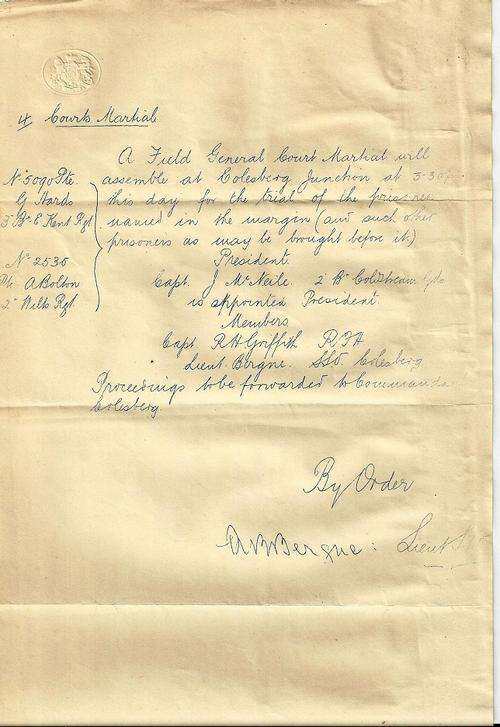 4 Courts Martial
A Field General Court Martial will
assemble at Colesberg Junction at 3-30
this day for the trial of the prisoner
named in the margin (and such other
prisoners as may be brought before it.)
No 5090 Pte
G Wards
3 Bn E Kent Rgt
No 2535
Pte A Bolton
2 Wilts Rgt
President
Capt. J McNeile. 2 Bn Coldstream Gds
is appointed President
Members
Capt. R H Griffith RFA
Lieut. Bergne. SSO. Colesberg
Proceedings to be forwarded to Commandt
Colesberg.
By Order
Bergne: Lieut